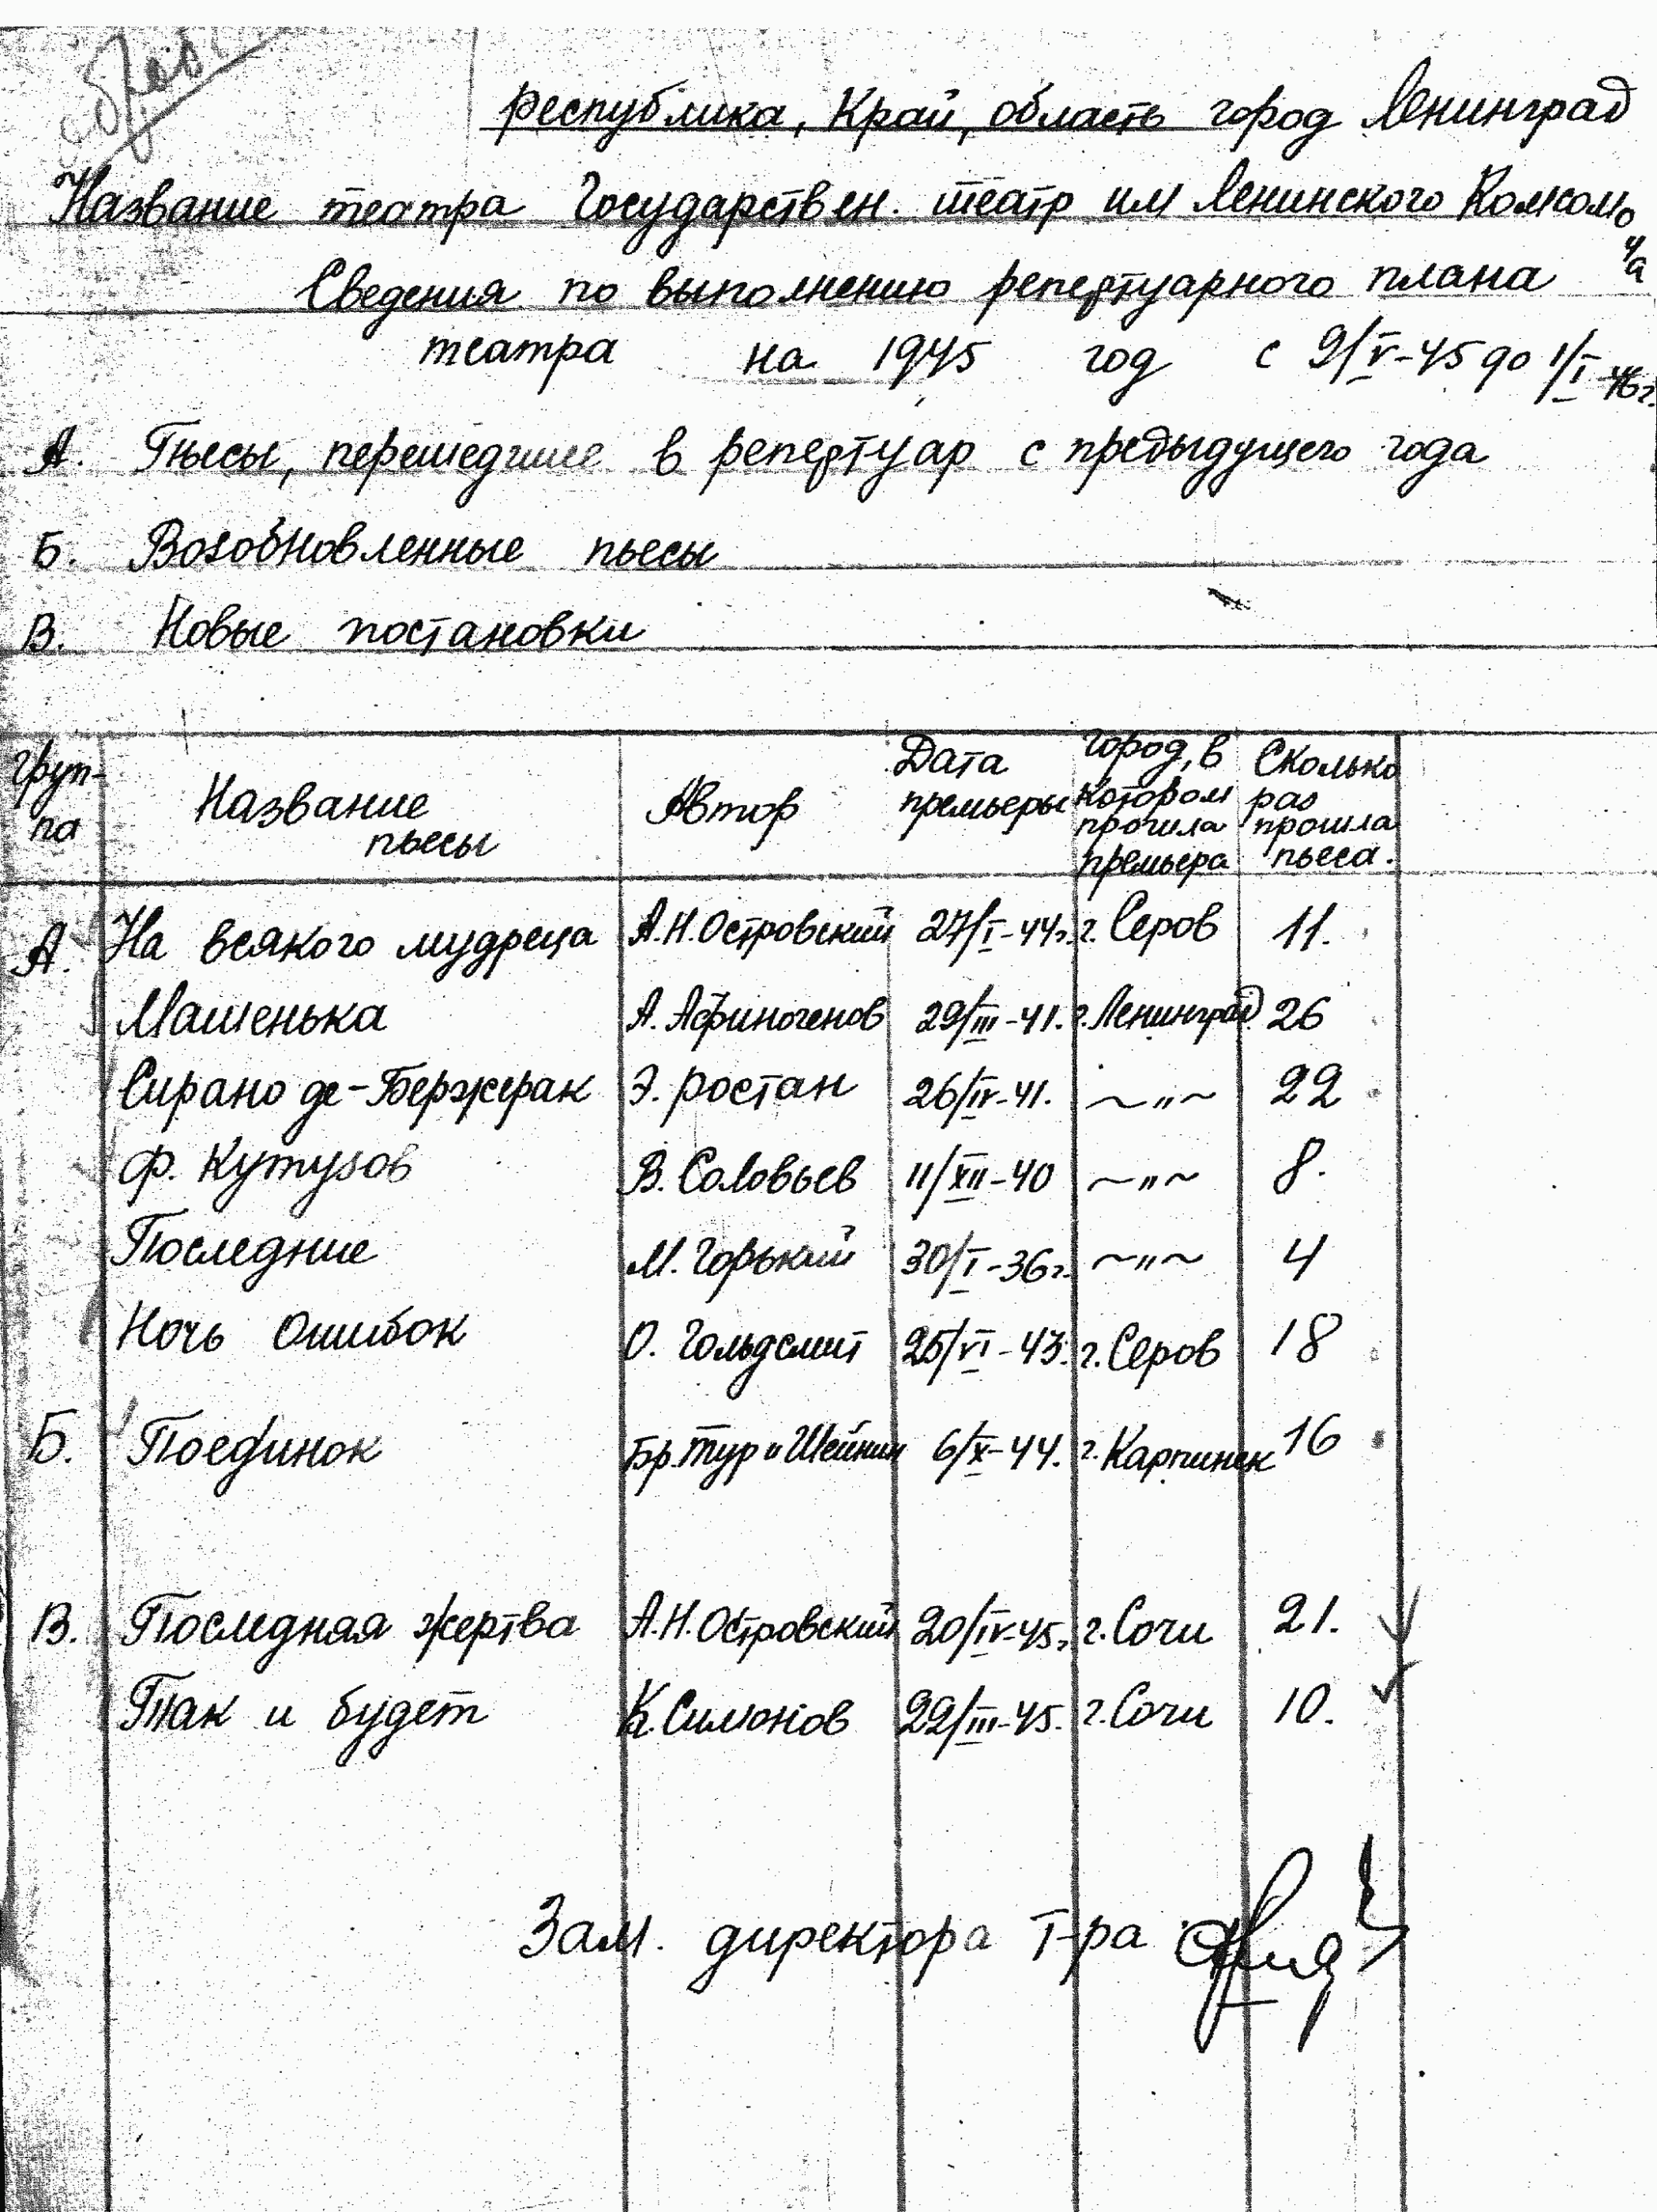 республика, Край, область город Ленинград
Название театра Государствен. театр им Ленинского Комсомо
ла
Сведения по выполнению репертуарного плана
театра на 1945 год с 9/V-45 до 1/I-46г.
А. Пьесы, перешедшие в репертуар с предыдущего года
Б. Возобновленные пьесы
В. Новые постановки
Груп-па Название пьесы Автор Дата премьеры Город, в котором прошла премьера Сколько раз прошла пьеса.
А. На всякого мудреца А.Н.Островский 27/I-44г. г. Серов 11.
Машенька А. Афиногенов 29/III-41. г.Ленинград 26
Сирано де-Бержерак Э. Ростан 26/IV-41. ~"~ 22
Ф. Кутузов В. Соловьев 11/XII-40 ~"~ 8.
Последние М. Горький 30/I-36г. ~"~ 4
Ночь Ошибок О. Гольдсмит 25/VI-43. г. Серов 18
Б. Поединок Бр. Тур и Шейнин 6/X-44. г. Карпинск 16
В. Последняя жертва А.Н.Островский 20/IV-45г. г. Сочи 21.
Так и будет К. Симонов 22/III-45. г. Сочи 10.
Зам. директора т-ра